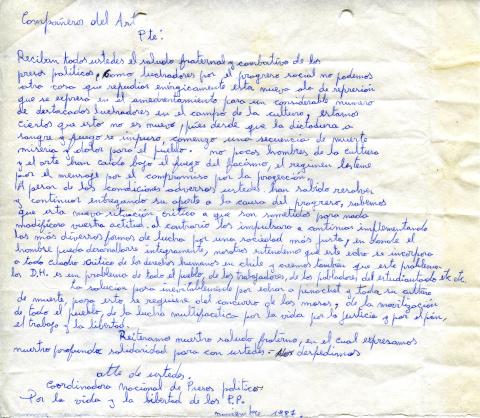 Compañeros del Art
Pte:
Reciban todos ustedes el saludo fraternal y combativo de los
presos políticos, como luchadores por el progreso social no podemos
otra cosa que repudiar enérgicamente esta nueva ola de represión
que se expresa en el amedrentamiento para un considerable numero
de destacados luchadores en el campo de la cultura, estamos
ciertos que esto no es nuevo, pues desde que la dictadura a
sangre y fuego se impuso, comenzo una secuencia de muerte
miseria y dolor para el pueblo. no pocos hombres de la cultura
y el arte han caido bajo el fuego del facismo, el regimen les teme
por el mensaje por el compromiso por la proyección.
A pesar de las condiciones adversas ustedes han sabido resolver
y continuar entregando su aporte a la causa del progreso, sabemos
que esta nueva situación critica a que son sometidos para nada
modificara vuestra actitud. al contrario los impulsara a continuar implementando
las más diversas formas de lucha por una sociedad más justa, en donde el
hombre pueda desarrollarse integramente, nosotros entendemos que este echo se incorpora
a todo cuadro critico de los derechos humanos en chile y creemos tambien que este problema
los D.H. es un problema de todo el pueblo, de los trabajadores, de los pobladores del estudiantado etc etc.
La solucion pasa inevitablemente por echar a pinochet y toda su cultura
de muerte, para esto se requiere del concurso de las masas, de la movilización
de todo el pueblo, de la lucha multifacetica por la vida por la justicia y por el pan,
el trabajo y la libertad.
Reiteramos nuestro saludo fraterno, en el cual expresamos
nuestra profunda solidaridad para con ustedes - Nos despedimos
atte de ustedes.
Coordinadora Nacional de Presos politicos
Por la vida y la libertad de los P.P.
noviembre 1987.